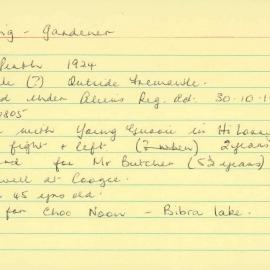 ig - Gardener
Perth 1924
(?) Outside Fremantle.
d under Aliens Reg. Act. 30-10-1
805
with Young in
fight & left (? when) 2 years
for Mr Butcher (5½ years)
well at Coogee.
45 yrs old.
for Choo Noon - Bibra Lake.